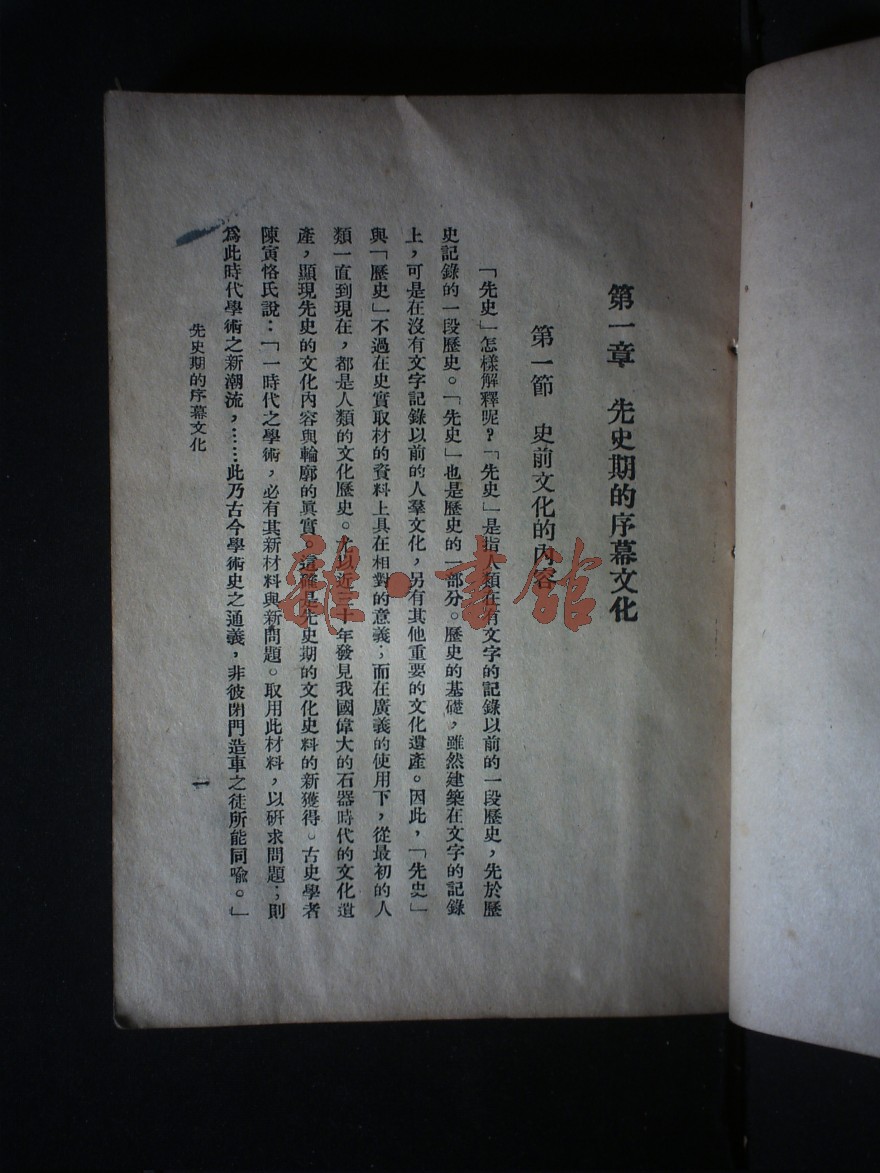 第一章　先史期的序幕文化
第一節　史前文化的內容
「先史」怎樣解釋呢？「先史」是指人類在有文字的記錄以前的一段歷史，先於歷
史記錄的一段歷史。「先史」也是歷史的一部分。歷史的基礎，雖然建築在文字的記錄
上，可是在沒有文字記錄以前的人羣文化，另有其他重要的文化遺產。因此，「先史」
與「歷史」不過在史實取材的資料上具在相對的意義；而在廣義的使用下，從最初的人
類一直到現在，都是人類的文化歷史。尤以近三十年發見我國偉大的石器時代的文化遺
產，顯現先史的文化內容與輪廓的眞實。這確是先史期的文化史料的新獲得。古史學者
陳寅恪氏說：「一時代之學術，必有其新材料與新問題。取用此材料，以研求問題；則
爲此時代學術之新潮流，……此乃古今學術史之通義，非彼閉門造車之徒所能同喩。」
先史期的序幕文化
一
雜·書館